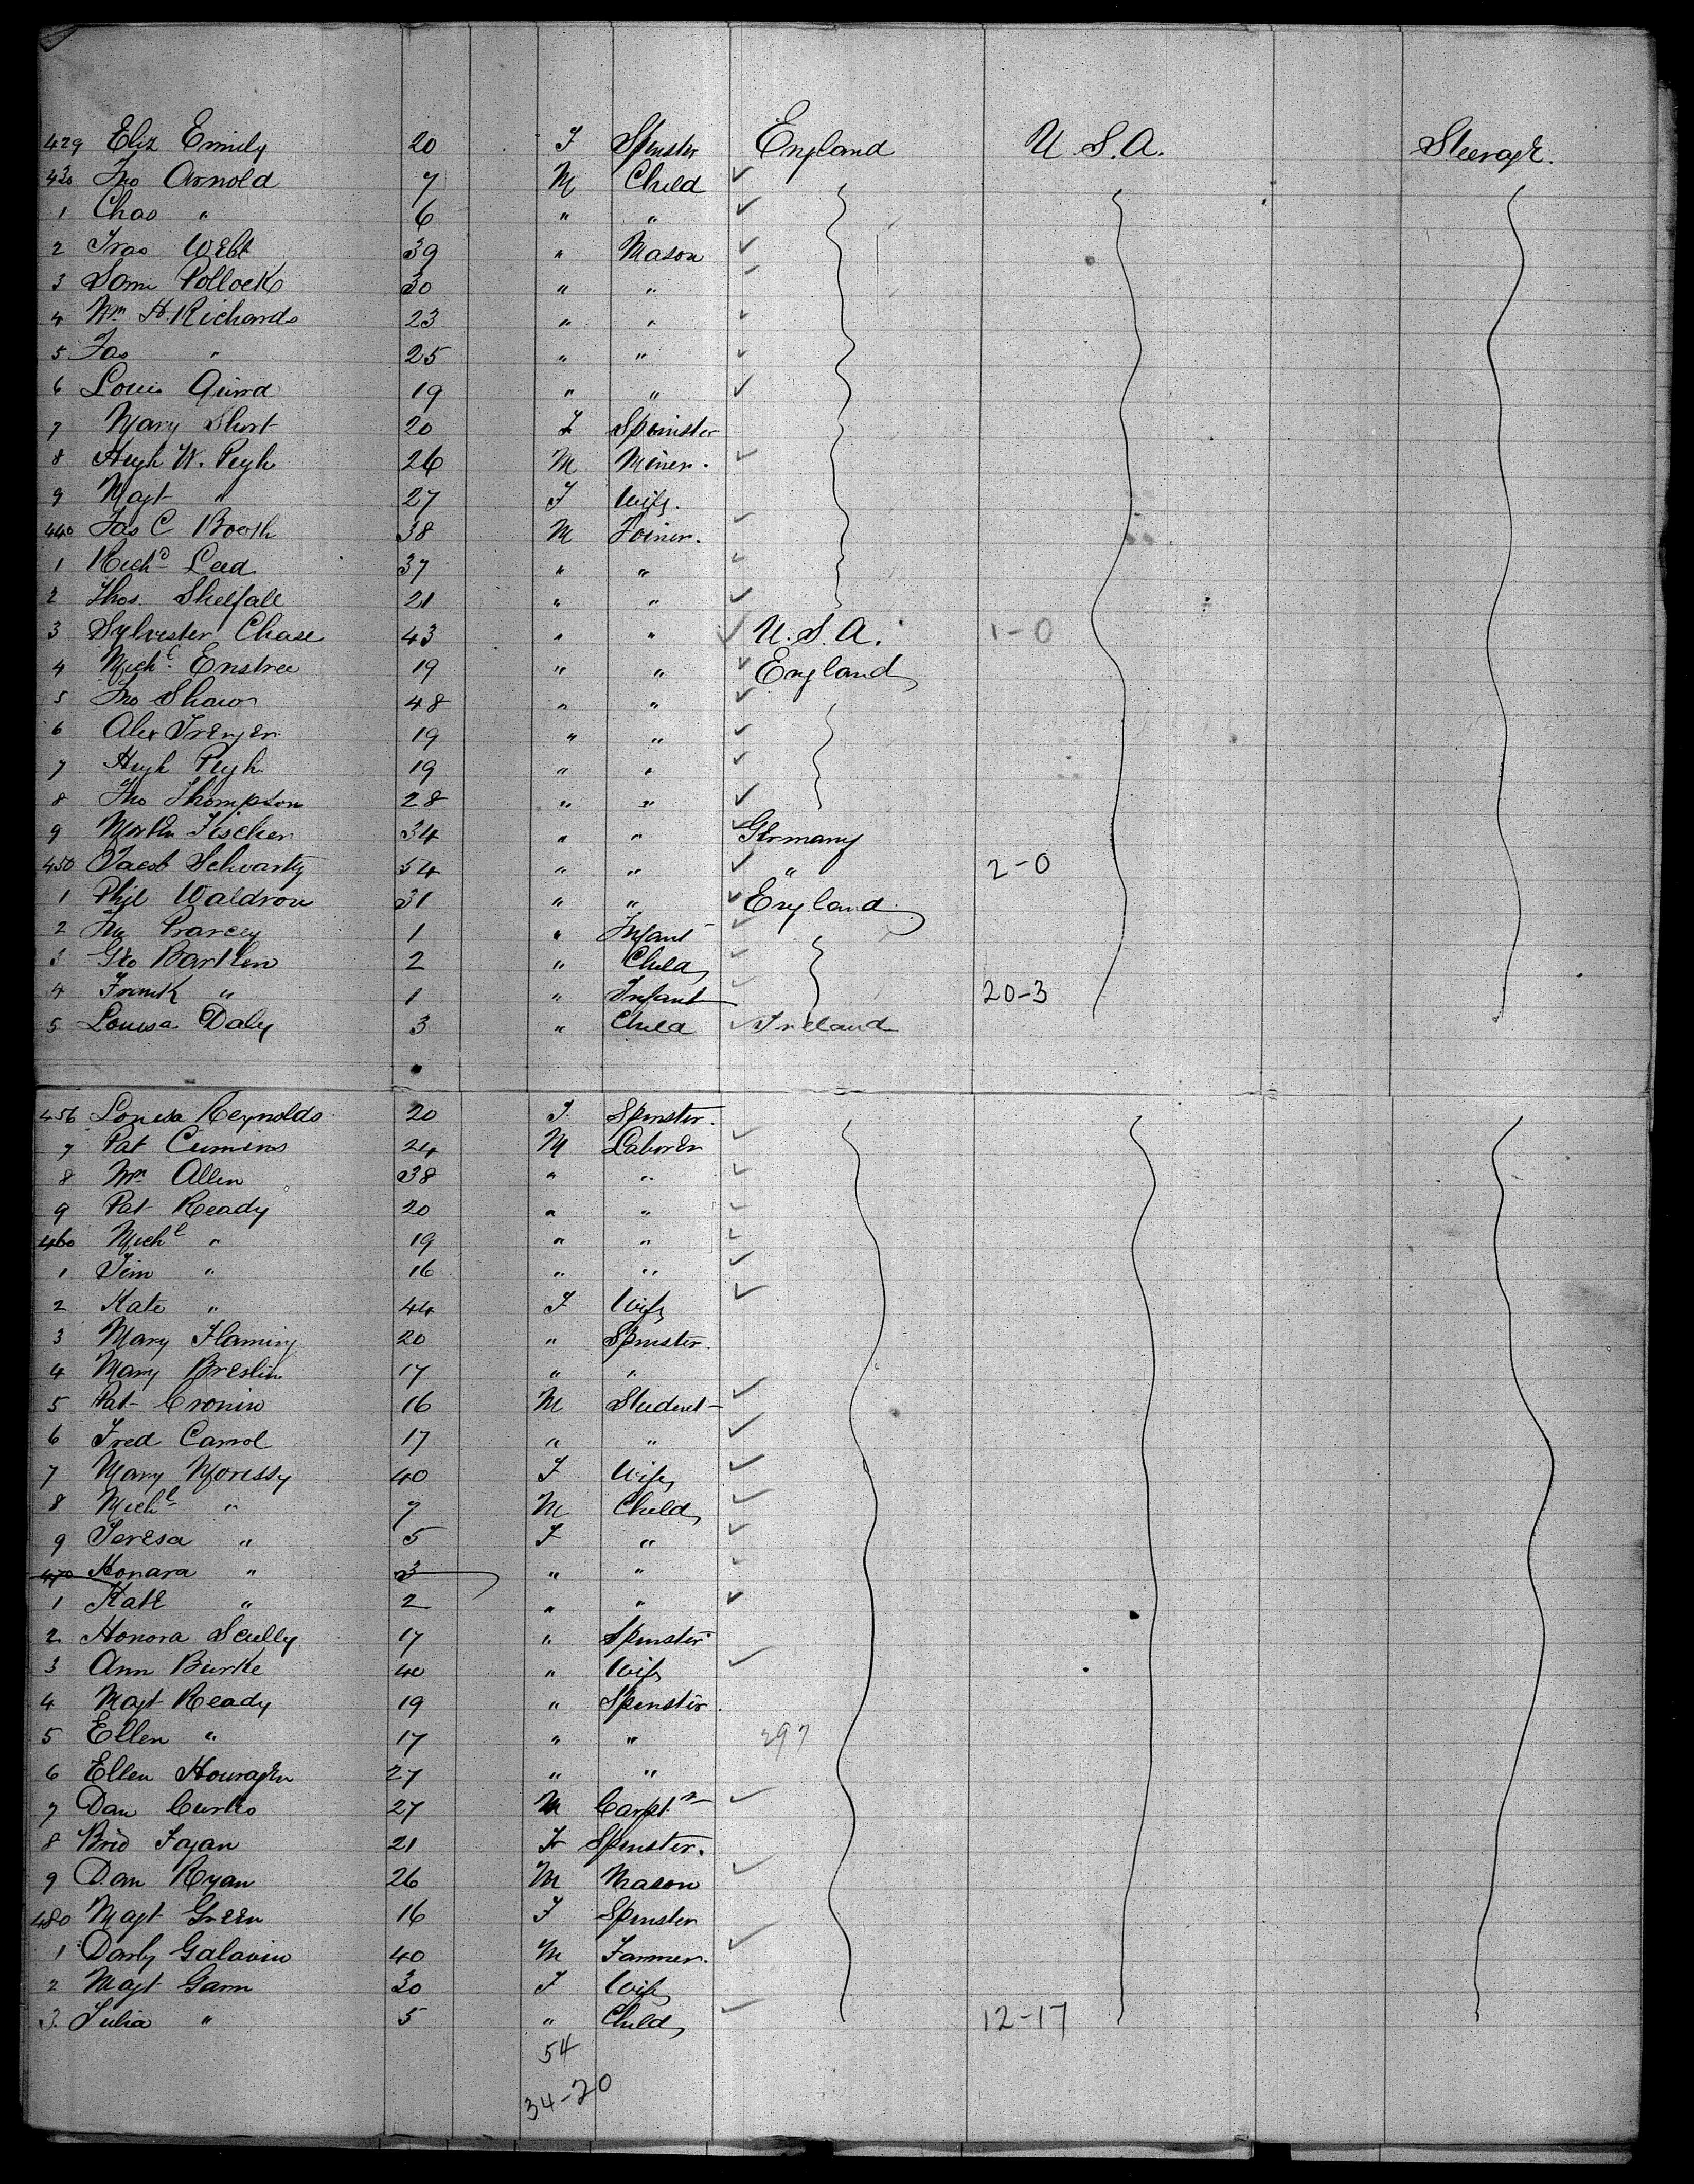 429 Eliz Emily 20 F Spinster England U.S.A. Steerage.
430 Jno Arnold 7 M Child
1 Chas " 6 " "
2 Fras Webb 39 " Mason
3 Saml Pollock 30 " "
4 Wm H. Richards 23 " "
5 Jas " 25 " "
6 Louis 19 " "
7 Mary Short 20 F Spinster
8 Hugh W. Pugh 26 M Miner.
9 Magt " 27 F Wife.
440 Jas C Booth 38 M Joiner.
1 Richd 37 " "
2 Thos. Shelfall 21 " "
3 Sylvester Chase 43 " " U.S.A. 1-0
4 Michl Enstree 19 " " England
5 Jno Shaw 48 " "
6 Alex 19 " "
7 Hugh Pugh 19 " "
8 Jno Thompson 28 " "
9 Fischer 34 " " Germany
450 Jacob Schwartz 54 " " " 2-0
1 Phil Waldron 31 " " England
2 1 " Infant
3 Geo Barthen 2 " Child
4 Frank " 1 " Infant 20-3
5 Louisa Daly 3 " Child Ireland
456 Louisa Reynolds 20 F Spinster.
7 Pat Cumins 24 M Laborer
8 Wm Allen 38 " "
9 Pat Ready 20 " "
460 Michl " 19 " "
1 Tim " 16 " "
2 Kate " 44 F Wife
3 Mary Flaming 20 " Spinster.
4 Mary Breslin 17 " "
5 Pat Cronin 16 M Student
6 Fred Carrol 17 " "
7 Mary Morissy 40 F Wife
8 Michl " 7 M Child
9 Teresa " 5 F "
470 Honara " 3 " "
1 Kate " 2 " "
2 Honora Scully 17 " Spinster
3 Ann Burke 40 " Wife
4 Magt Ready 19 " Spinster.
5 Ellen " 17 " " 297
6 Ellen Houragen 27 " "
7 Dan Curtis 27 M Carptr
8 Brid Fagan 21 F Spinster.
9 Dan Ryan 26 M Mason
480 Magt Green 16 F Spinster
1 Darby Galavin 40 M Farmer.
2 Magt Gann 30 F Wife
3. Julia " 5 " Child 12-17
54
34-20